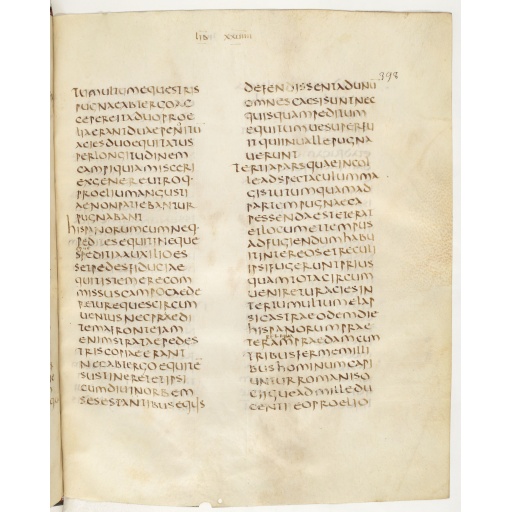 lib xxuiii
398
TUMULTUMEQUESTRIS
PUGNACABIERGOAC
CEPEREITADUOPROE
LIAERANTDUAEPENITU
ACIESDUOEQUITATUS
PERLONGITUDINEM
CAMPIQUIAMISCERI
EXGENEREUTROQ·
PROELIUMANGUSTI
AENONPATIEBANTUR
PUGNABANT
HISPANORUMCUMNEQ·
PEDITESEQUITINEQUE
SPEDITIAAUXILIOES
SETPEDESFIDUCIAE
QUITISTEMERECOM
MISSUSCAMPOCAEDE
RETUREQUESCIRCUM
UENIUSNECPRAEDI
TEMAFRONTEIAM
ENIMSTRATAEPEDES
TRISCOPIAEERANT
NECABERGOEQUITE
SUSTINERETETIPSI
CUMDIUINORBEM
SESESTANTIBUSEQUIS
DEFENDISSENTADUNU
OMNESCAESISUNTNEC
QUISQUAMPEDITUM
EQUITUMUESUPERFU
ITQUIINUALLEPUGNA
UERUNT
TERTIAPARSQUAEINCOL
LEADSPECTACULUMMA
GISTUTUMQUAMAD
PARTEMPUGNAECA
PESSENDAESTETERAT
ETLOCUMETTEMPUS
ADFUGIENDUMHABU
ITINTEREOSETRECULI
IPSIFUGERUNTPRIUS
QUAMTOTACIRCUM
UENIRETURACIESIN
TERTUMULTUMELAP
SICASTRAEODEMDIE
HISPANORUMPRAE
TERAMPRAEDAMEUM
TRIBUSFERMEMILLI
BUSHOMINUMCAPI
UNTURROMANISO
CIIQUEADMILLEDU
CENTIEOPROELIO